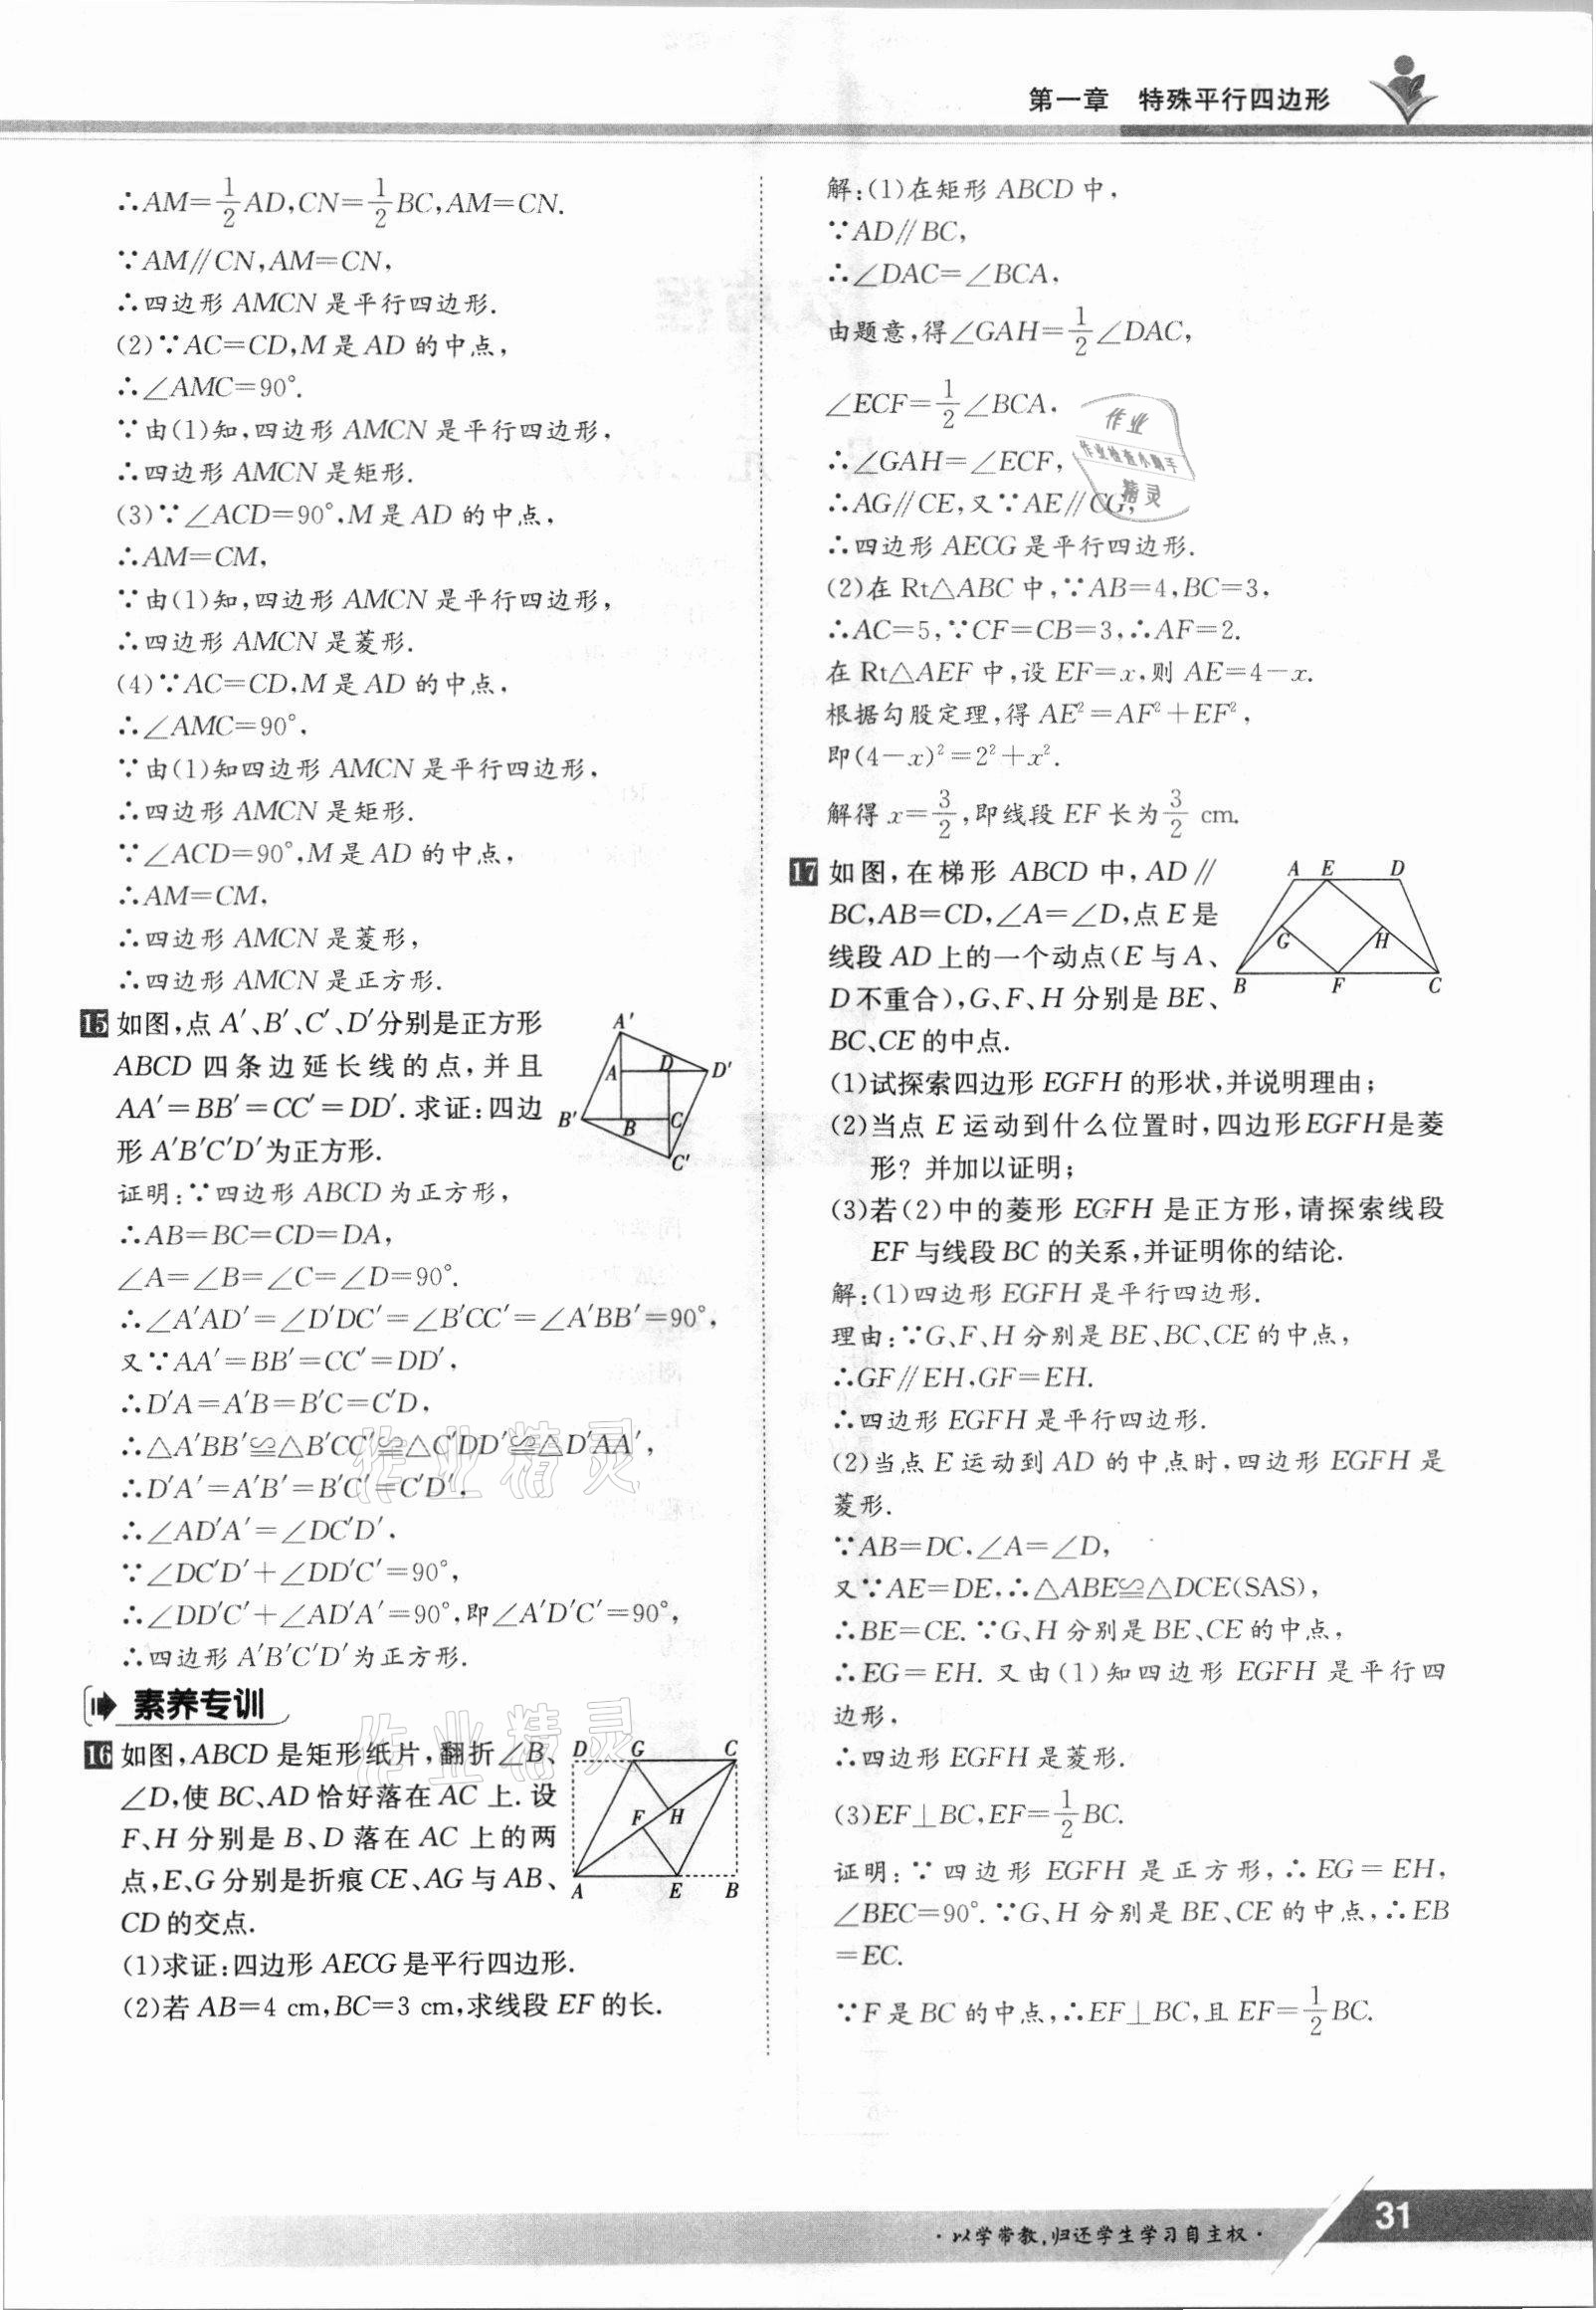 第一章 特殊平行四边形
∴AM=1/2AD,CN=1/2BC,AM=CN.
∵AM∥CN,AM=CN,
∴四边形 AMCN 是平行四边形.
(2)∵AC=CD,M 是 AD 的中点,
∴∠AMC=90°.
∵由(1)知,四边形 AMCN 是平行四边形,
∴四边形 AMCN 是矩形.
(3)∵∠ACD=90°,M 是 AD 的中点,
∴AM=CM,
∵由(1)知,四边形 AMCN 是平行四边形,
∴四边形 AMCN 是菱形.
(4)∵AC=CD,M 是 AD 的中点,
∴∠AMC=90°,
∵由(1)知四边形 AMCN 是平行四边形,
∴四边形 AMCN 是矩形.
∵∠ACD=90°,M 是 AD 的中点,
∴AM=CM,
∴四边形 AMCN 是菱形,
∴四边形 AMCN 是正方形.
15 如图,点 A′、B′、C′、D′分别是正方形
ABCD 四条边延长线的点,并且
AA′=BB′=CC′=DD′.求证:四边
形 A′B′C′D′为正方形.
A′
A
D
D′
B′
B
C
C′
证明:∵四边形 ABCD 为正方形,
∴AB=BC=CD=DA,
∠A=∠B=∠C=∠D=90°.
∴∠A′AD′=∠D′DC′=∠B′CC′=∠A′BB′=90°,
又∵AA′=BB′=CC′=DD′,
∴D′A=A′B=B′C=C′D,
∴△A′BB′≌△B′CC′≌△C′DD′≌△D′AA′,
∴D′A′=A′B′=B′C′=C′D′,
∴∠AD′A′=∠DC′D′,
∵∠DC′D′+∠DD′C′=90°,
∴∠DD′C′+∠AD′A′=90°,即∠A′D′C′=90°,
∴四边形 A′B′C′D′为正方形.
素养专训
16 如图,ABCD 是矩形纸片,翻折∠B、
∠D,使 BC、AD 恰好落在 AC 上.设
F、H 分别是 B、D 落在 AC 上的两
点,E、G 分别是折痕 CE、AG 与 AB、
CD 的交点.
D G C
F H
A E B
(1)求证:四边形 AECG 是平行四边形.
(2)若 AB=4 cm,BC=3 cm,求线段 EF 的长.
解:(1)在矩形 ABCD 中,
∵AD∥BC,
∴∠DAC=∠BCA,
由题意,得∠GAH=1/2∠DAC,
∠ECF=1/2∠BCA,
∴∠GAH=∠ECF,
∴AG∥CE,又∵AE∥CG,
∴四边形 AECG 是平行四边形.
(2)在 Rt△ABC 中,∵AB=4,BC=3,
∴AC=5,∵CF=CB=3,∴AF=2.
在 Rt△AEF 中,设 EF=x,则 AE=4-x.
根据勾股定理,得 AE²=AF²+EF²,
即(4-x)²=2²+x².
解得 x=3/2,即线段 EF 长为3/2 cm.
17 如图,在梯形 ABCD 中,AD∥
BC,AB=CD,∠A=∠D,点 E 是
线段 AD 上的一个动点(E 与 A、
D 不重合),G、F、H 分别是 BE、
BC、CE 的中点.
A E D
G H
B F C
(1)试探索四边形 EGFH 的形状,并说明理由;
(2)当点 E 运动到什么位置时,四边形 EGFH 是菱
形?并加以证明;
(3)若(2)中的菱形 EGFH 是正方形,请探索线段
EF 与线段 BC 的关系,并证明你的结论.
解:(1)四边形 EGFH 是平行四边形.
理由:∵G、F、H 分别是 BE、BC、CE 的中点,
∴GF∥EH,GF=EH.
∴四边形 EGFH 是平行四边形.
(2)当点 E 运动到 AD 的中点时,四边形 EGFH 是
菱形.
∵AB=DC,∠A=∠D,
又∵AE=DE,∴△ABE≌△DCE(SAS),
∴BE=CE.∵G、H 分别是 BE、CE 的中点,
∴EG=EH.又由(1)知四边形 EGFH 是平行四
边形,
∴四边形 EGFH 是菱形.
(3)EF⊥BC,EF=1/2BC.
证明:∵四边形 EGFH 是正方形,∴EG=EH,
∠BEC=90°.∵G、H 分别是 BE、CE 的中点,∴EB
=EC.
∵F 是 BC 的中点,∴EF⊥BC,且 EF=1/2BC.
作业
作业检查小助手
精灵
作业精灵
作业精灵
·以学带教,归还学生学习自主权·
31